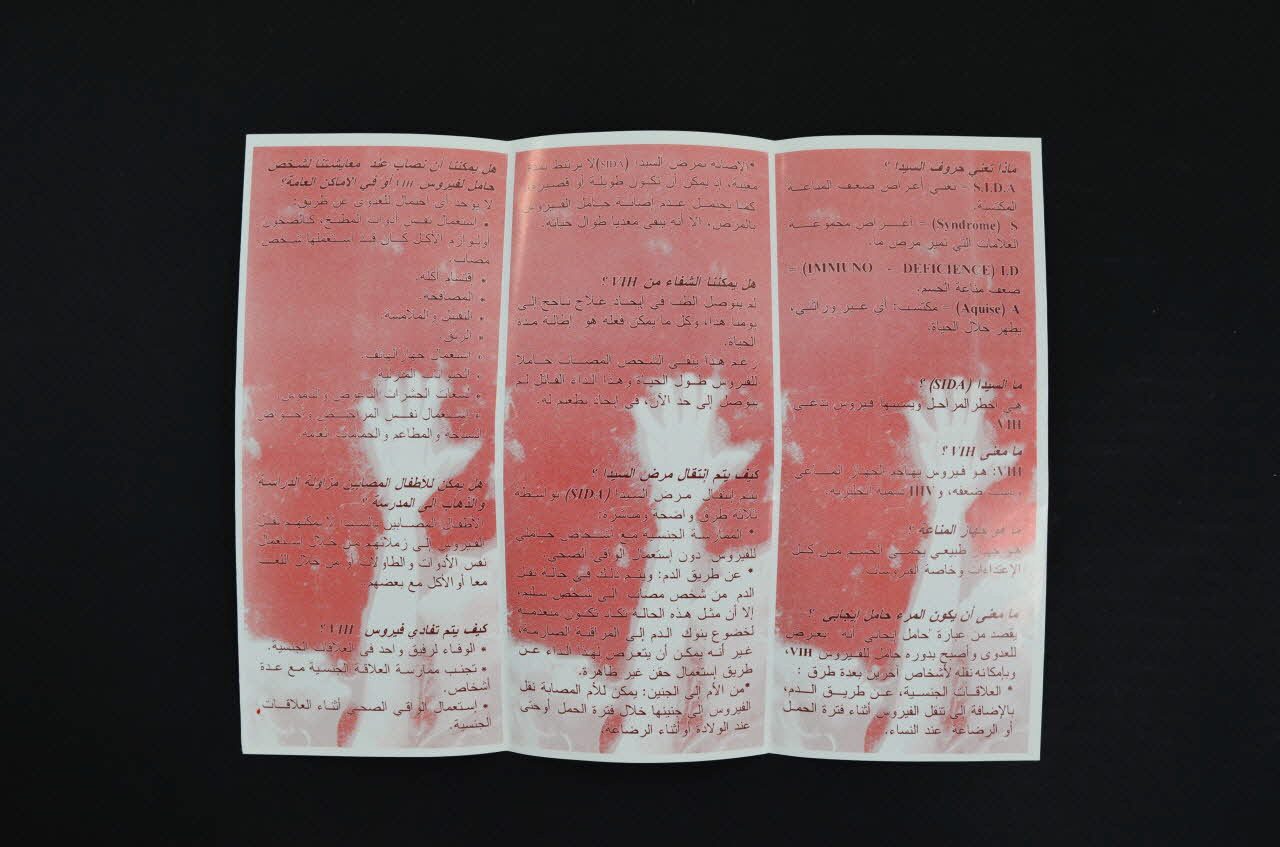 ماذا تعني حروف السيدا؟
S.I.D.A = تعني أعراض ضعف المناعة
المكتسبة.
S (Syndrome) = أعراض مجموعة
العلامات التي تميز مرض ما.
I.D (IMMUNO - DEFICIENCE) =
ضعف مناعة الجسم.
A (Aquise) = مكتسب: أي غير وراثي،
يظهر خلال الحياة.
ما السيدا (SIDA) ؟
هي أخطر المراحل ويسببها فيروس يدعى
VIH
ما معنى VIH؟
VIH: هو فيروس يهاجم الجهاز المناعي
ويسبب ضعفه، و HIV تسمية إنجليزية.
ما هو جهاز المناعة؟
هو جهاز طبيعي يحمي الجسم من كل
الإعتداءات وخاصة الفيروسات
ما معنى أن يكون المرء حامل إيجابي ؟
يقصد من عبارة "حامل إيجابي أنه تعرض
للعدوى وأصبح بدوره حامل للفيروس VIH،
وبإمكانه نقله لأشخاص آخرين بعدة طرق :
* العلاقات الجنسية، عن طريق الدم،
بالإضافة إلى تنقل الفيروس أثناء فترة الحمل
أو الرضاعة عند النساء.
*الإصابة بمرض السيدا (SIDA) لا يرتبط بمدة
معينة، إذ يمكن أن تكون طويلة أو قصيرة،
كما يحتمل عدم إصابة حامل الفيروس
بالمرض، إلا أنه يبقى معديا طوال حياته.
هل يمكننا الشفاء من VIH ؟
لم يتوصل الطب في إيجاد علاج ناجح إلى
يومنا هذا، وكل ما يمكن فعله هو إطالة مدة
الحياة.
رغم هذا يبقى الشخص المصاب حاملا
للفيروس طول الحياة وهذا الداء القاتل لم
يتوصل إلى حد الآن، في إيجاد تطعيم له.
كيف يتم إنتقال مرض السيدا ؟
يتم إنتقال مرض السيدا (SIDA) بواسطة
ثلاثة طرق واضحة ومباشرة:
* الممارسة الجنسية مع أشخاص حاملي
للفيروس دون إستعمال الواقي الصحي
* عن طريق الدم: ويتم ذلك في حالة نقل
الدم من شخص مصاب إلى شخص سليم،
إلا أن مثل هذه الحالة تكاد تكون منعدمة
لخضوع بنوك الدم إلى المراقبة الصارمة،
غير أنه يمكن أن يتعرض لهذا الداء عن
طريق إستعمال حقن غير طاهرة.
*من الأم إلى الجنين: يمكن للأم المصابة نقل
الفيروس إلى جنينها خلال فترة الحمل أو حتى
عند الولادة أو أثناء الرضاعة.
هل يمكننا أن نصاب عند معايشتنا لشخص
حامل لفيروس VIH أو في الأماكن العامة؟
لا يوجد أي احتمال للعدوى عن طريق:
* استعمال نفس أدوات المطبخ، كالصحون
أولوازم الأكل كان قد استعملها شخص
مصاب.
* اقتسام أكله.
* المصافحة.
* التقبيل والملامسة.
* الريق.
* استعمال جهاز الهاتف.
* الحيوانات المنزلية.
* لسعات الحشرات كالبعوض والناموس
* إستعمال نفس المراحيض وأحواض
السباحة والمطاعم والحمامات العامة.
هل يمكن للأطفال المصابين مزاولة الدراسة
والذهاب إلى المدرسة ؟
الأطفال المصابين بالسيدا لا يمكنهم نقل
الفيروس إلى زملائهم من خلال استعمال
نفس الأدوات والطاولات أو من خلال اللعب
معا أو الأكل مع بعضهم.
كيف يتم تفادي فيروس VIH؟
* الوفاء لرفيق واحد في العلاقات الجنسية.
* تجنب ممارسة العلاقة الجنسية مع عدة
أشخاص.
* إستعمال الواقي الصحي أثناء العلاقات
الجنسية.